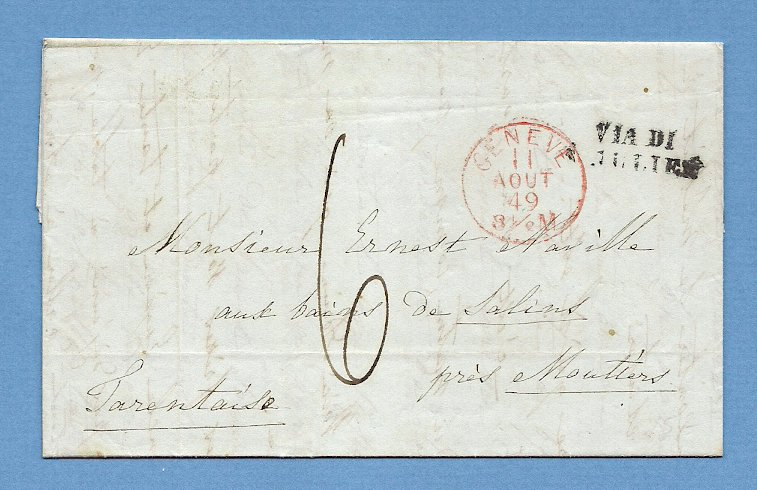 GENEVE
11
AOUT
49
VIA DI
JULIEN
6
Monsieur Ernest Naville
aux bains de Salins
près Moutiers
Tarentaise